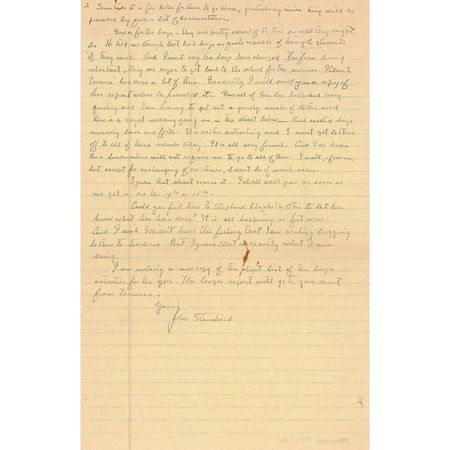 2 Sometimes it is far better for them to go alone, particularly since they will be
preceded by quite a lot of documentation.
Now as for the boys - they are pretty scared of as well they might
be. He told me though that both boys are quite capable of being A students
if they want. And I must say the boys have changed. From being
reluctant, they are eager to get back to the school for the summer.
Terrence has done a lot of this. Eventually I will send you a copy of
her report when he finishes it. Now all of this has happened very
quickly and I am having to get out a goodly number of letters and
there is a royal wedding going on in the street below. And excited boys
running back and forth. It is rather distracting and I must get letters
off to all of these schools today. It is all very formal. And I do hope
these universities will not require me to go to all of them. I will, of course,
but except for exchanging of courtesies, I won't be of much value.
I guess that about covers it. I shall call you as soon as
we get in on the 14th or 15th.
Could you find time to telephone Elizabeth Otis to let her
know what has been done? It is all happening so fast now.
And I wish I didn't have the feeling that I am writing begging
letters to teachers. But I guess that is exactly what I am
doing.
I am enclosing a new copy of the short list of the boys
activities for the year. The longer report will go to you direct
from Terrence.
Yours,
John Steinbeck